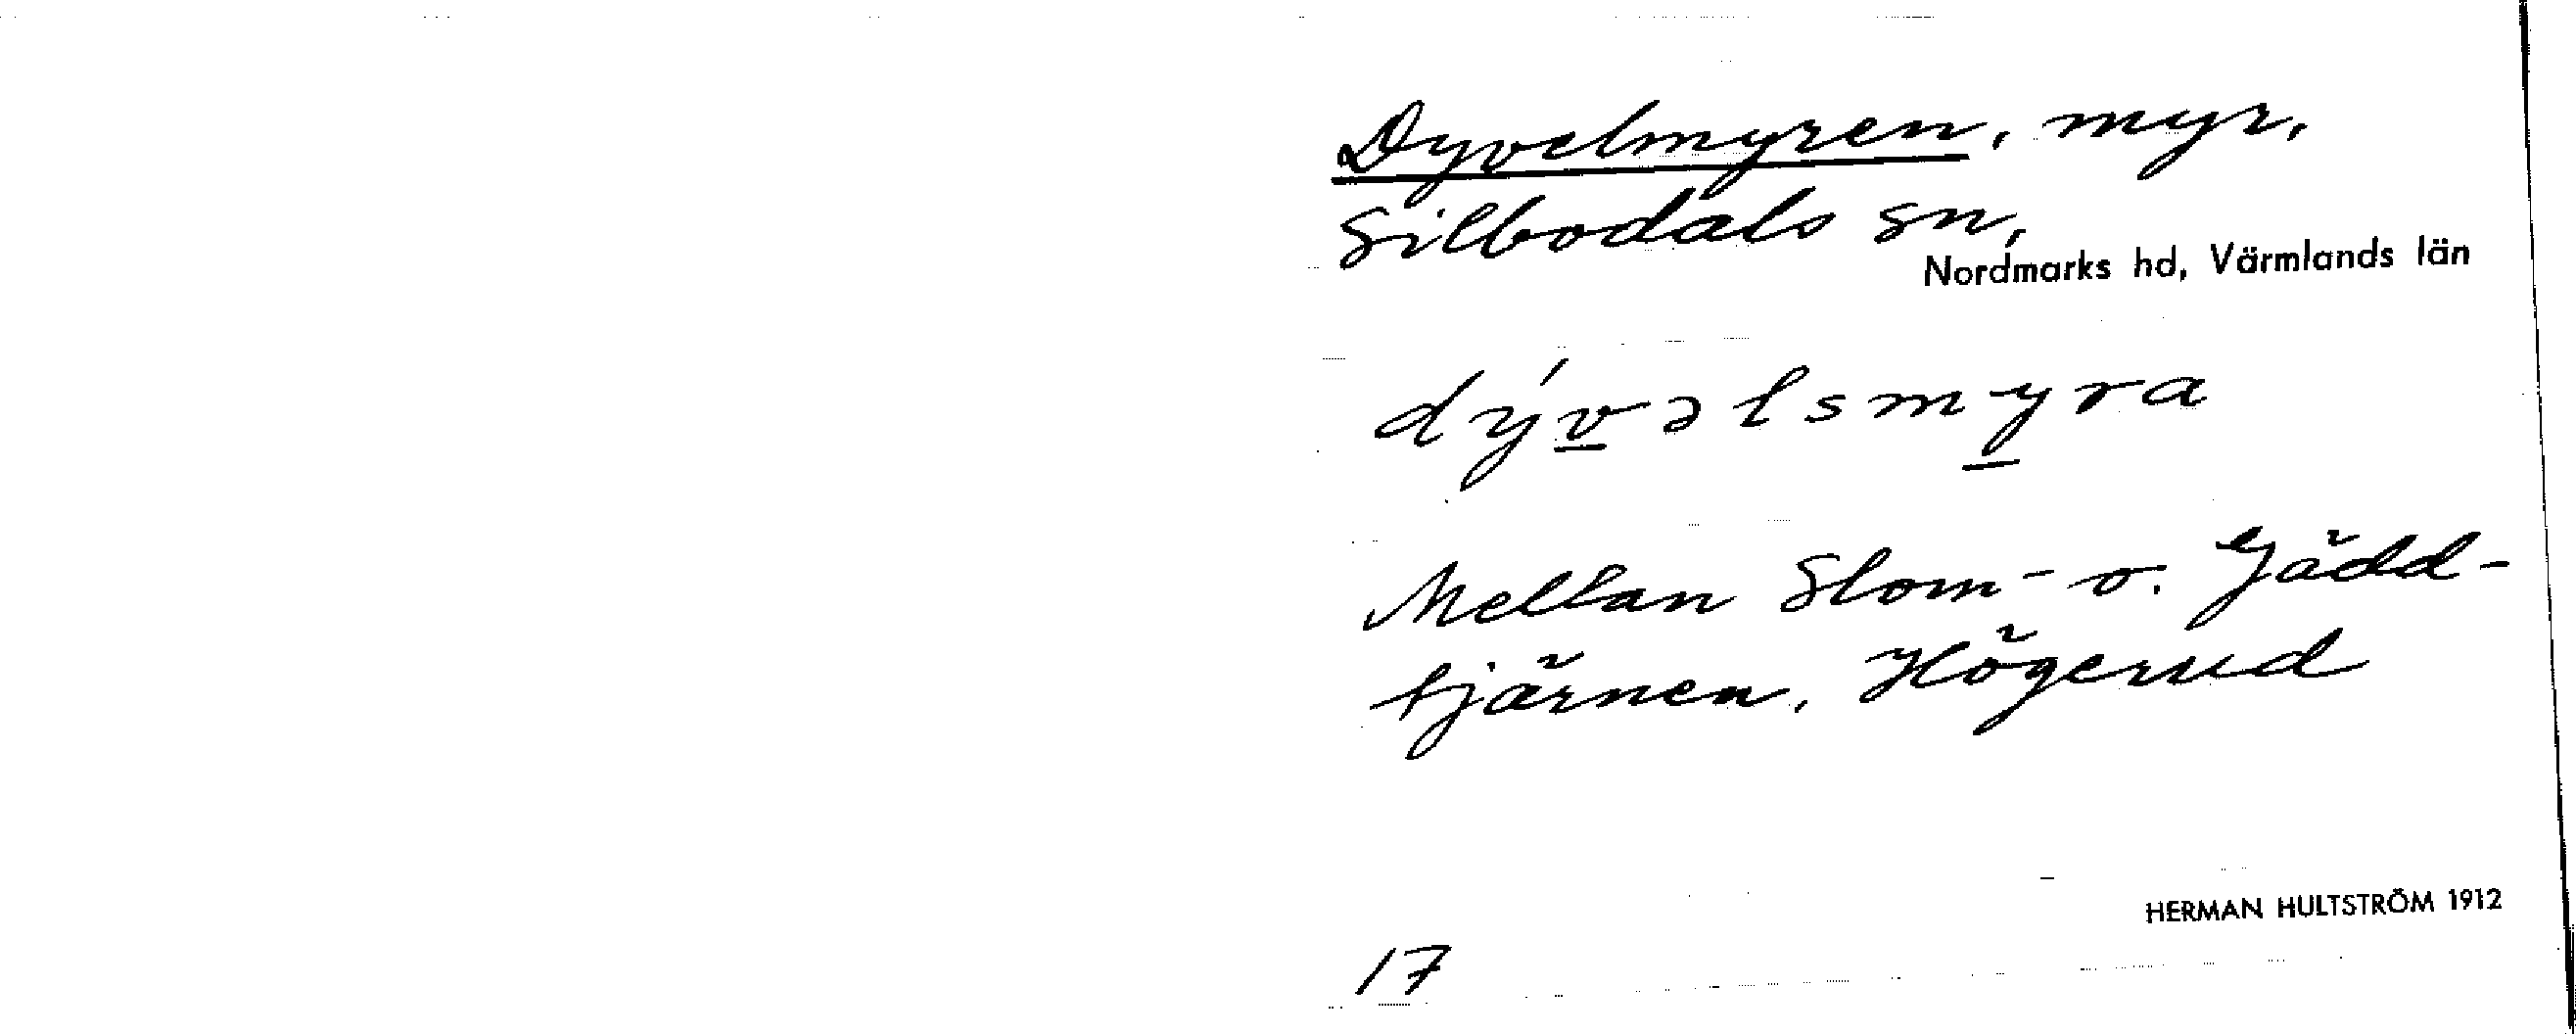 Dyvelmyren, myr,
Silbodals sn,
Nordmarks hd, Värmlands län
dy´vəlsmyra
Mellan Slom- o. Gädd-
tjärnen, Högerud
HERMAN HULTSTRÖM 1912
17